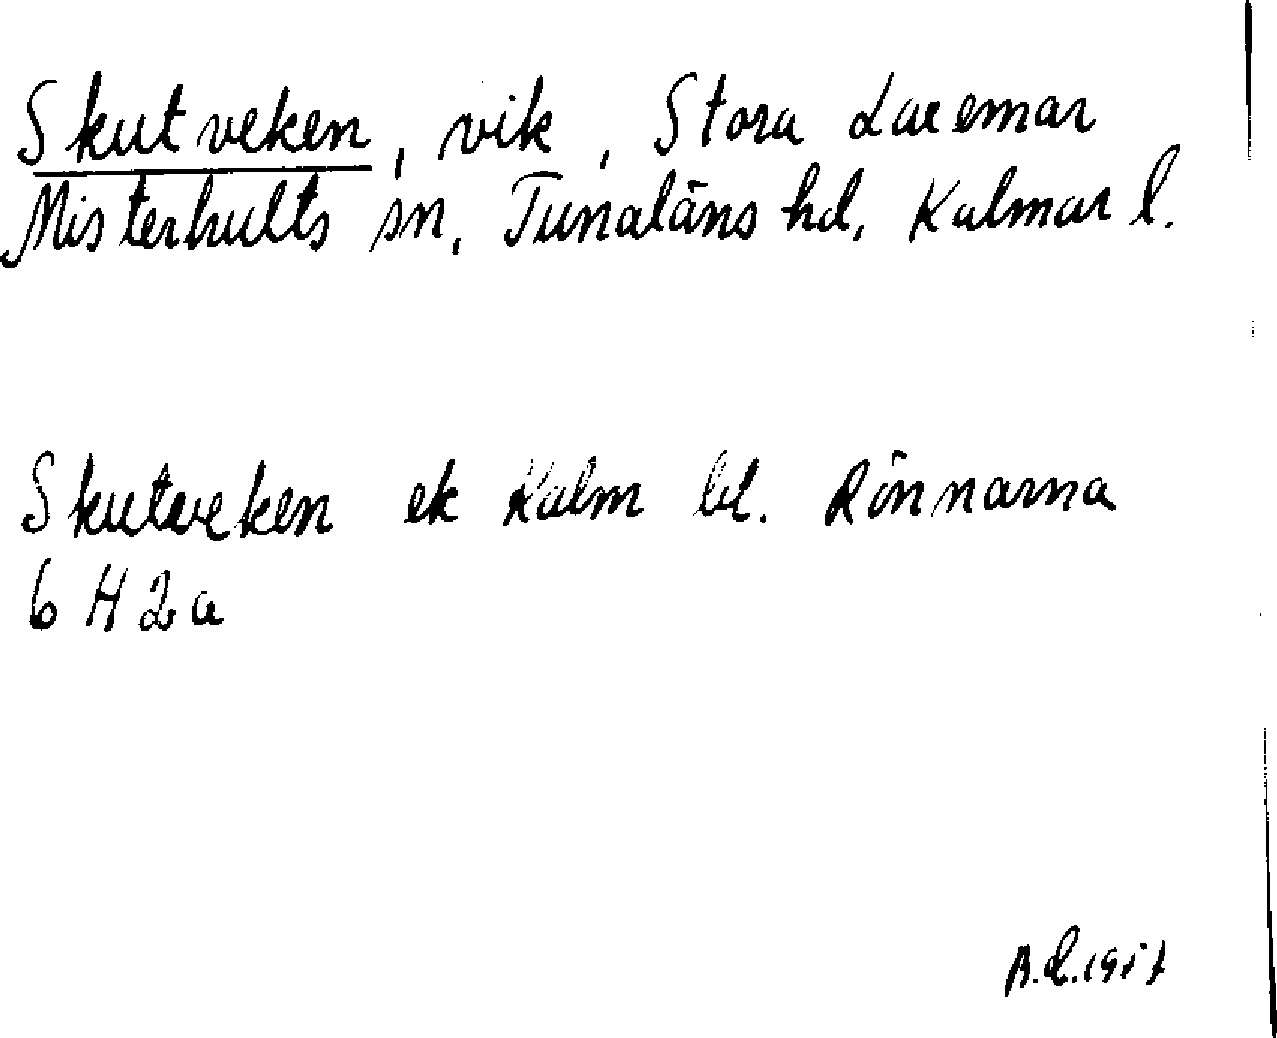 Skutveken, vik, Stora Laxemar
Misterhults sn, Tunaläns hd, Kalmar l.
Skutveken ek Kalm bl. Rönnarna
6 H 2a